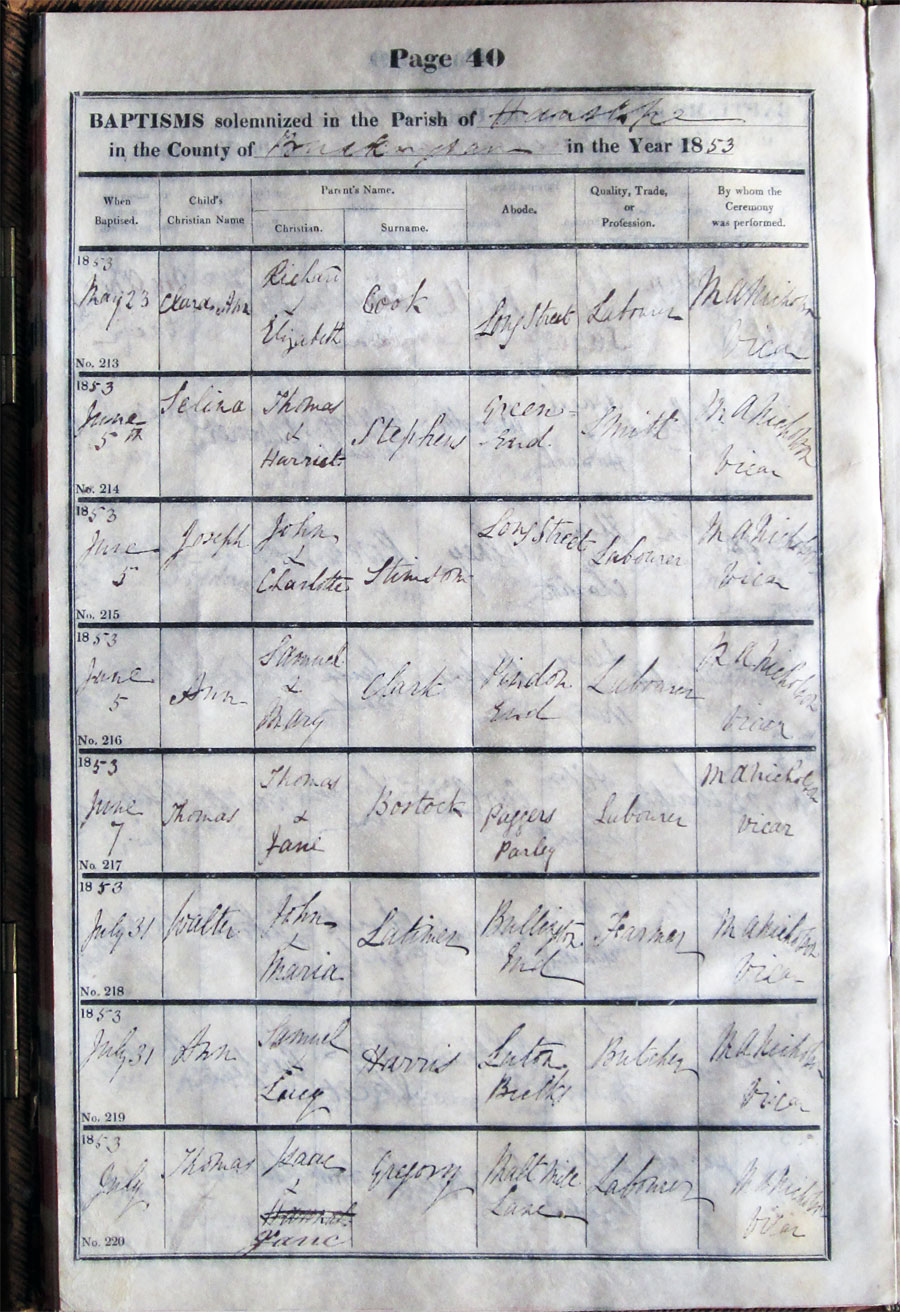 Page 40
BAPTISMS solemnized in the Parish of Hanslope
in the County of Buckingham in the Year 1853
When Baptised.
Child's Christian Name
Parent's Name.
Christian.
Surname.
Abode.
Quality, Trade, or Profession.
By whom the Ceremony was performed.
1853
May 23 Clara Ann Richard & Elizabeth Cook Long Street Labourer M A Nicholson Vicar
No. 213
1853
June 5th Selina Thomas & Harriet Stephens Green End Smith M A Nicholson Vicar
No. 214
1853
June 5 Joseph John & Charlotte Stimson Long Street Labourer M A Nicholson Vicar
No. 215
1853
June 5 Ann Samuel & Mary Clark Pindon End Labourer M A Nicholson Vicar
No. 216
1853
June 7 Thomas Thomas & Jane Bostock Labourer M A Nicholson Vicar
No. 217
1853
July 31 Walter John & Maria Latimer Bullington End Farmer M A Nicholson Vicar
No. 218
1853
July 31 Ann Samuel & Lucy Harris Luton Butcher M A Nicholson Vicar
No. 219
1853
July Thomas Isaac & Hannah Jane Gregory Malt Mill Lane Labourer M A Nicholson Vicar
No. 220